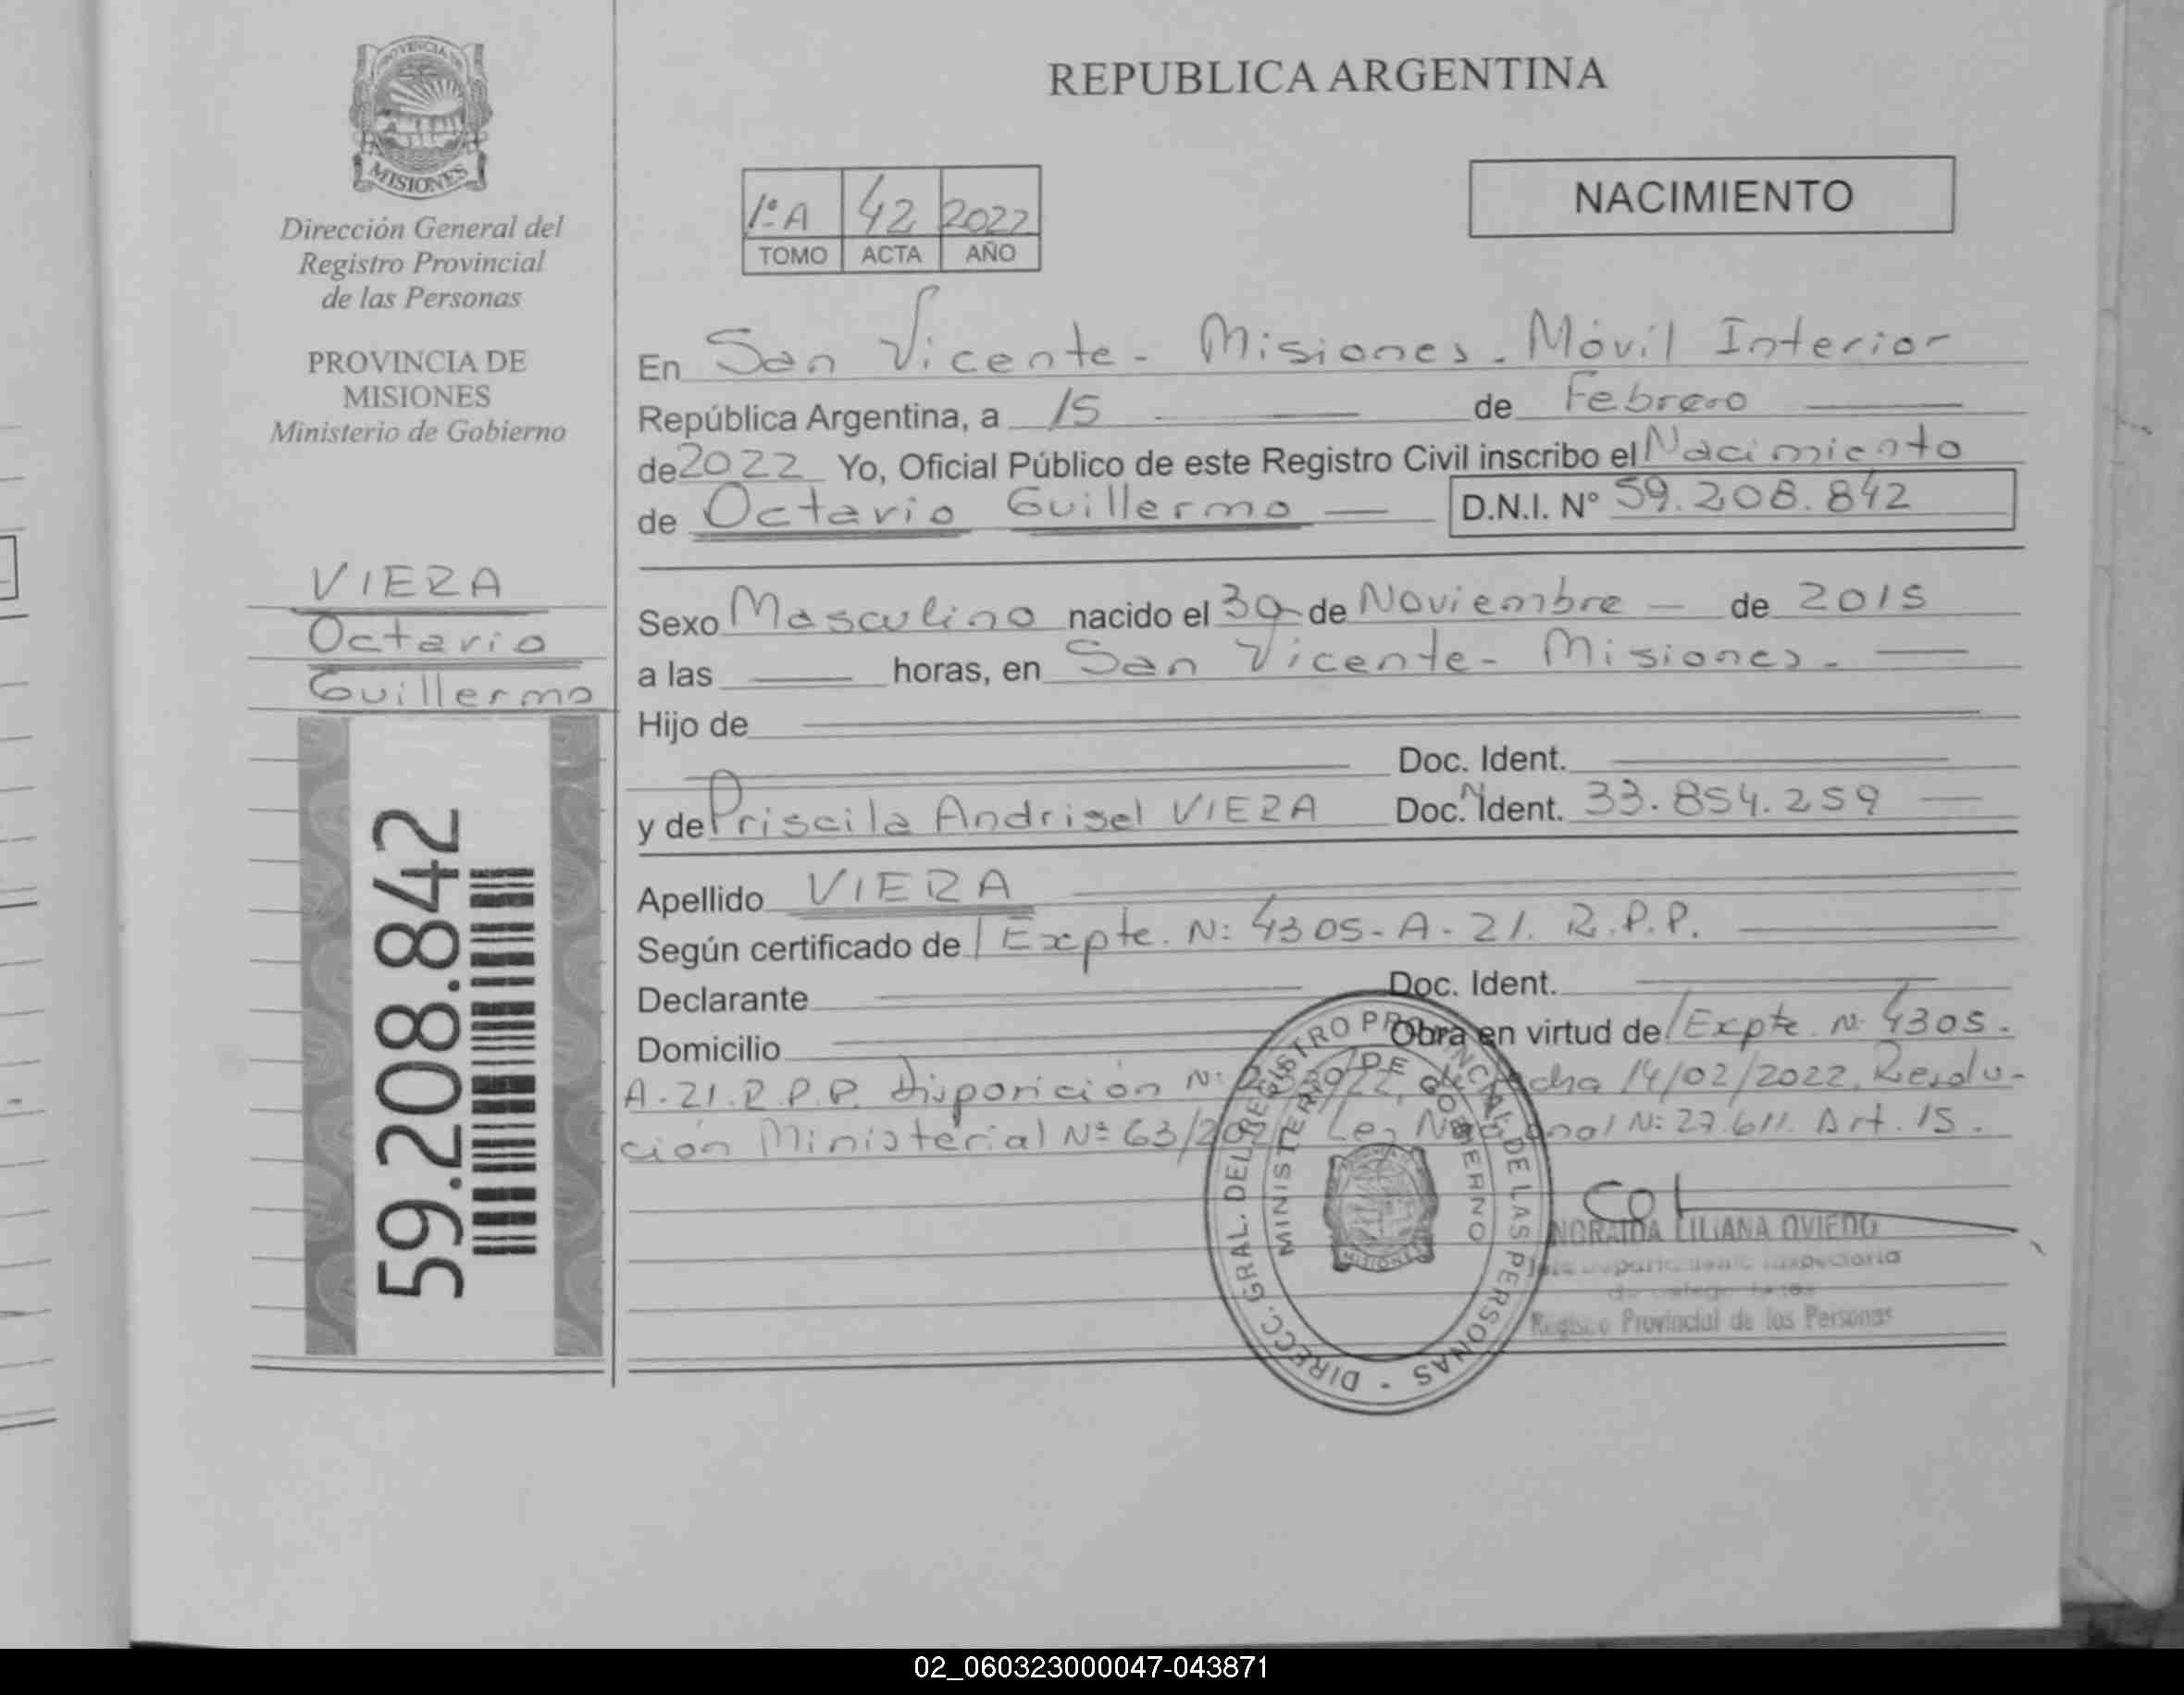 PROVINCIA DE
MISIONES
Dirección General del
Registro Provincial
de las Personas
PROVINCIA DE
MISIONES
Ministerio de Gobierno
VIERA
Octavio
Guillermo
59.208.842
REPUBLICA ARGENTINA
1º A 42 2022
TOMO ACTA AÑO
NACIMIENTO
En San Vicente - Misiones. Móvil Interior
República Argentina, a 15 de Febrero
de 2022 Yo, Oficial Público de este Registro Civil inscribo el Nacimiento
de Octavio Guillermo D.N.I. Nº 59.208.842
Sexo Masculino nacido el 30 de Noviembre de 2015
a las horas, en San Vicente - Misiones.
Hijo de
Doc. Ident.
y de Priscila Andrisel VIERA Doc. N Ident. 33.854.259
Apellido VIERA
Según certificado de / Expte. N: 4305-A-21. R.P.P.
Declarante Doc. Ident.
Domicilio Obra en virtud de / Expte. N: 4305-
A-21.R.P.P. Disposición N: fecha 14/02/2022, Resolu-
ción Ministerial Nº 63/ Ley Nacional N: 27.611. Art. 15.
DIRECC. GRAL. DEL REGISTRO PROVINCIAL DE LAS PERSONAS -
MINISTERIO DE GOBIERNO
MISIONES
NORAIDA LILIANA OVIEDO
Inspectoria
Registro Provincial de las Personas
02_060323000047-043871